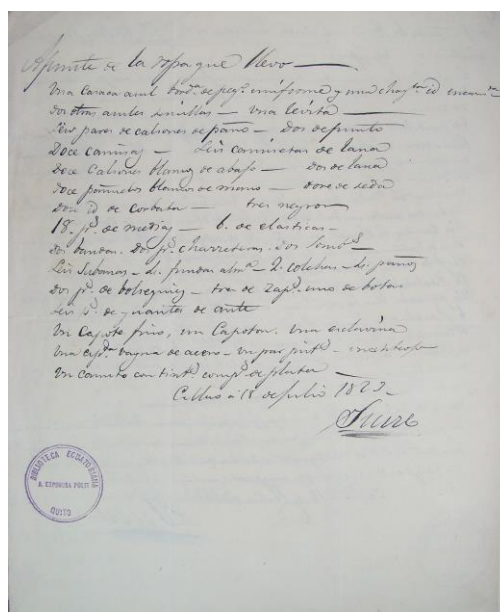 Apunte de la ropa que llevo
Una casaca azul bord.ª de peq.º uniforme y una chaq.ta id
Dos otras azules sencillas — una levita
pares de calzones de paño — Dos de punto
Doce camisas — Seis camisetas de lana
Doce calzones blancos de abajo — dos de lana
Doce pañuelos blancos de mano — doce de seda
Dos id de corbata — tres negros
18. p.s de medias — 6. de elasticas
dos bandas. Dos p.s charreteras. Dos
Seis Sabanas — fundas 2. colchas — paños
Dos p.s de botines — tres de zap.s uno de botas
Seis p.s de guantes de ante
Un Capote fino, un Capoton. Una esclavina
Una esp.da vayna de acero — un par pist.s — un
Un de plata
Callao a 18 de Julio 182
Sucre
BIBLIOTECA ECUATORIANA
A. ESPINOSA POLIT
QUITO